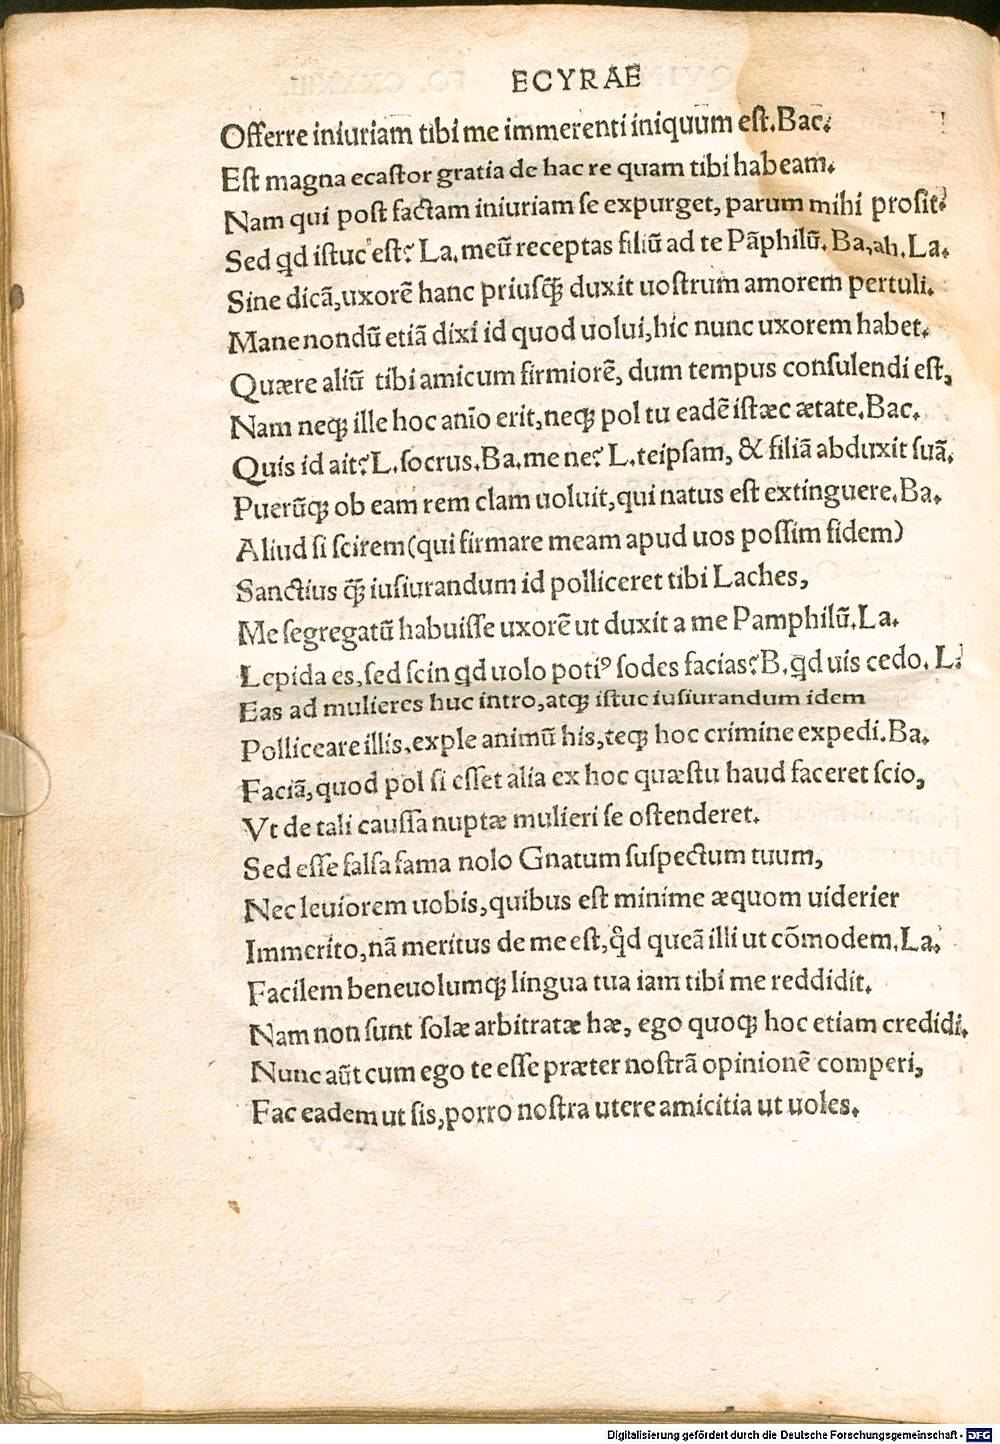 ECYRAE
Offerre iniuriam tibi me immerenti iniquum est.Bac.
Est magna ecastor gratia de hac re quam tibi habeam.
Nam qui post factam iniuriam se expurget, parum mihi prosit.
Sed qd istuc est? La.meū receptas filiū ad te Pāphilū.Ba,ah.La.
Sine dicā,uxorē hanc priusq̄ duxit uostrum amorem pertuli.
Mane nondū etiā dixi id quod uolui,hic nunc uxorem habet.
Quære aliū tibi amicum firmiorē, dum tempus consulendi est,
Nam neqꝫ ille hoc anīo erit,neqꝫ pol tu eadē istæc ætate.Bac.
Quis id ait? L.socrus.Ba.me ne? L.teipsam, & filiā abduxit suā.
Puerūqꝫ ob eam rem clam uoluit,qui natus est extinguere.Ba.
Aliud si scirem(qui firmare meam apud uos possim fidem)
Sanctius q̄ iusiurandum id polliceret tibi Laches,
Me segregatū habuisse uxorē ut duxit a me Pamphilū.La.
Lepida es,sed scin qd uolo potiꝰ sodes facias? B.qd uis cedo. L.
Eas ad mulieres huc intro,atqꝫ istuc iusiurandum idem
Polliceare illis,exple animū his,teqꝫ hoc crimine expedi.Ba.
Faciā,quod pol si esset alia ex hoc quæstu haud faceret scio,
Vt de tali caussa nuptæ mulieri se ostenderet.
Sed esse falsa fama nolo Gnatum suspectum tuum,
Nec leuiorem uobis,quibus est minime æquom uiderier
Immerito,nā meritus de me est,qd queā illi ut cōmodem.La.
Facilem beneuolumqꝫ lingua tua iam tibi me reddidit.
Nam non sunt solæ arbitratæ hæ, ego quoqꝫ hoc etiam credidi.
Nunc aūt cum ego te esse præter nostrā opinionē comperi,
Fac eadem ut sis,porro nostra utere amicitia ut uoles.
Digitalisierung gefördert durch die Deutsche Forschungsgemeinschaft - DFG